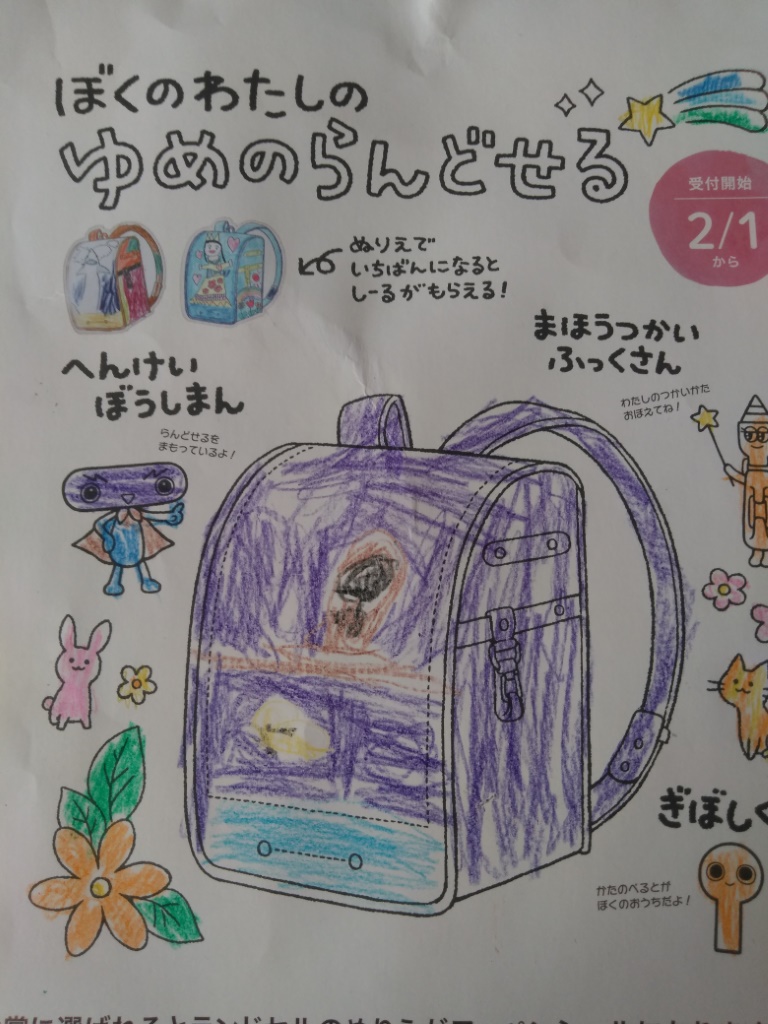 ぼくのわたしの
ゆめのらんどせる
受付開始
2/1
から
ぬりえで
いちばんになると
しーるがもらえる!
まほうつかい
ふっくさん
わたしのつかいかた
おぼえてね!
へんけい
ぼうしまん
らんどせるを
まもっているよ!
ぎぼしく
かたのべるとが
ぼくのおうちだよ!